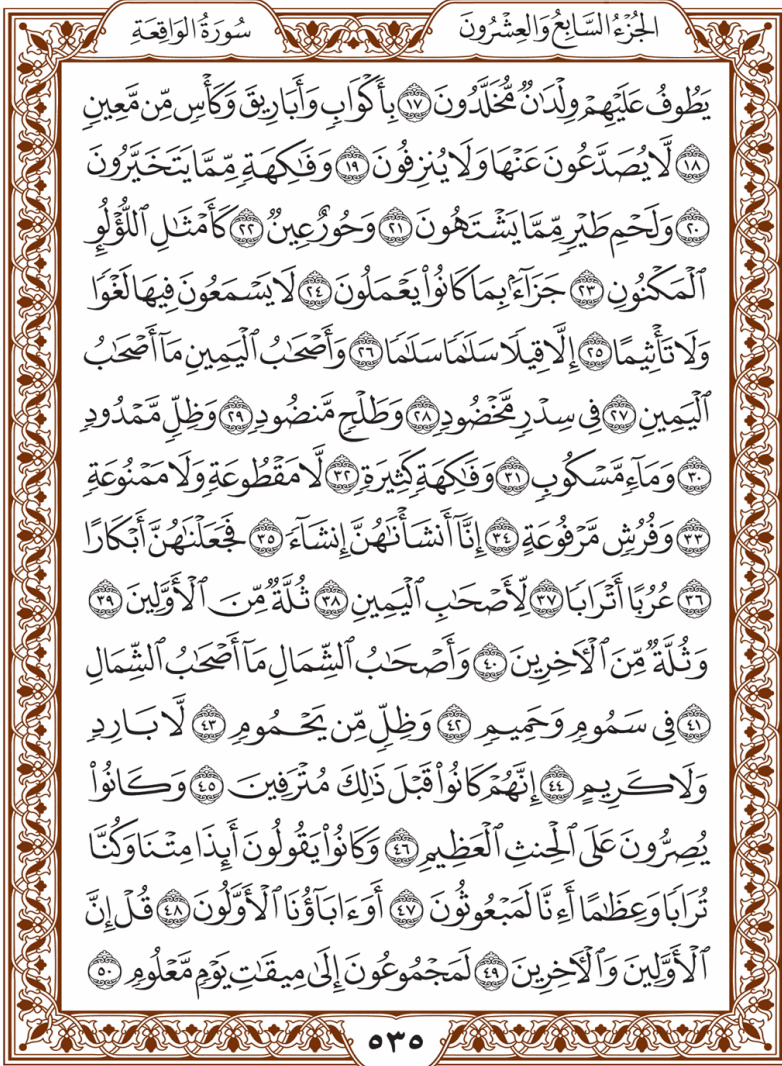 الجُزْءُ السَّابِعُ وَالعِشْرُونَ
سُورَةُ الوَاقِعَةِ
يَطُوفُ عَلَيْهِمْ وِلْدَٰنٌ مُّخَلَّدُونَ ١٧ بِأَكْوَابٍ وَأَبَارِيقَ وَكَأْسٍ مِّن مَّعِينٍ
١٨ لَّا يُصَدَّعُونَ عَنْهَا وَلَا يُنزِفُونَ ١٩ وَفَٰكِهَةٍ مِّمَّا يَتَخَيَّرُونَ
٢٠ وَلَحْمِ طَيْرٍ مِّمَّا يَشْتَهُونَ ٢١ وَحُورٌ عِينٌ ٢٢ كَأَمْثَٰلِ ٱللُّؤْلُوِٕ
ٱلْمَكْنُونِ ٢٣ جَزَآءًۢ بِمَا كَانُوا۟ يَعْمَلُونَ ٢٤ لَا يَسْمَعُونَ فِيهَا لَغْوًا
وَلَا تَأْثِيمًا ٢٥ إِلَّا قِيلًا سَلَٰمًا سَلَٰمًا ٢٦ وَأَصْحَٰبُ ٱلْيَمِينِ مَآ أَصْحَٰبُ
ٱلْيَمِينِ ٢٧ فِى سِدْرٍ مَّخْضُودٍ ٢٨ وَطَلْحٍ مَّنضُودٍ ٢٩ وَظِلٍّ مَّمْدُودٍ
٣٠ وَمَآءٍ مَّسْكُوبٍ ٣١ وَفَٰكِهَةٍ كَثِيرَةٍ ٣٢ لَّا مَقْطُوعَةٍ وَلَا مَمْنُوعَةٍ
٣٣ وَفُرُشٍ مَّرْفُوعَةٍ ٣٤ إِنَّآ أَنشَأْنَٰهُنَّ إِنشَآءً ٣٥ فَجَعَلْنَٰهُنَّ أَبْكَارًا
٣٦ عُرُبًا أَتْرَابًا ٣٧ لِّأَصْحَٰبِ ٱلْيَمِينِ ٣٨ ثُلَّةٌ مِّنَ ٱلْأَوَّلِينَ ٣٩
وَثُلَّةٌ مِّنَ ٱلْءَاخِرِينَ ٤٠ وَأَصْحَٰبُ ٱلشِّمَالِ مَآ أَصْحَٰبُ ٱلشِّمَالِ
٤١ فِى سَمُومٍ وَحَمِيمٍ ٤٢ وَظِلٍّ مِّن يَحْمُومٍ ٤٣ لَّا بَارِدٍ
وَلَا كَرِيمٍ ٤٤ إِنَّهُمْ كَانُوا۟ قَبْلَ ذَٰلِكَ مُتْرَفِينَ ٤٥ وَكَانُوا۟
يُصِرُّونَ عَلَى ٱلْحِنثِ ٱلْعَظِيمِ ٤٦ وَكَانُوا۟ يَقُولُونَ أَئِذَا مِتْنَا وَكُنَّا
تُرَابًا وَعِظَٰمًا أَءِنَّا لَمَبْعُوثُونَ ٤٧ أَوَءَابَآؤُنَا ٱلْأَوَّلُونَ ٤٨ قُلْ إِنَّ
ٱلْأَوَّلِينَ وَٱلْءَاخِرِينَ ٤٩ لَمَجْمُوعُونَ إِلَىٰ مِيقَٰتِ يَوْمٍ مَّعْلُومٍ ٥٠
٥٣٥